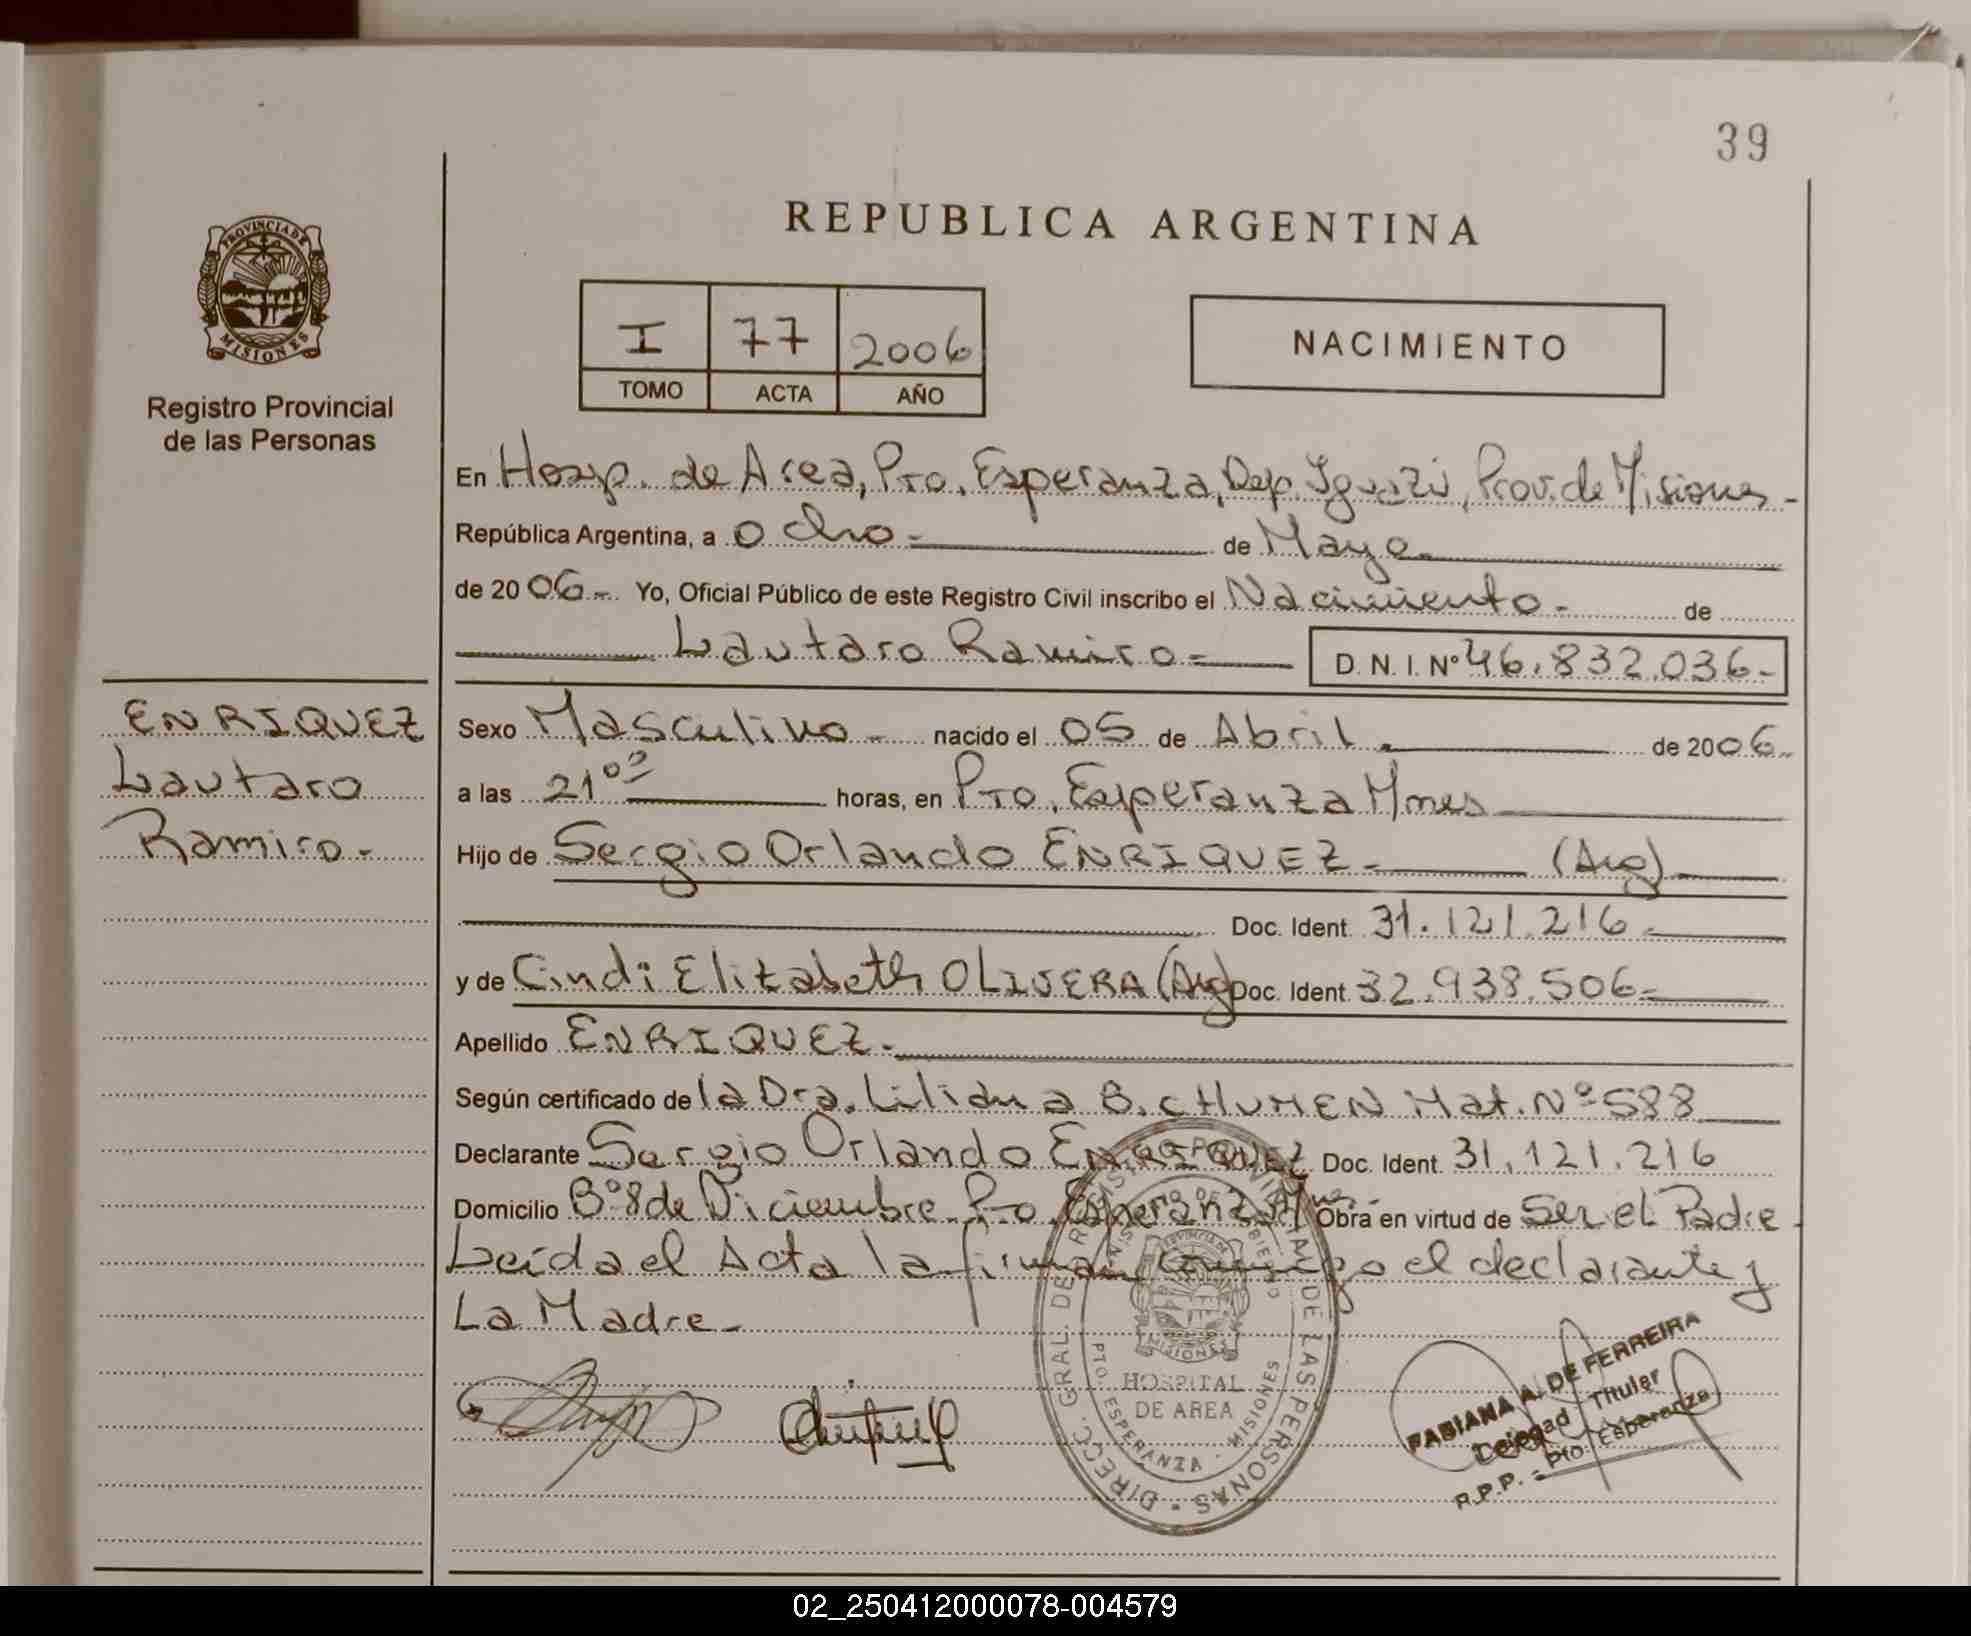 39
PROVINCIA DE
MISIONES
Registro Provincial
de las Personas
REPUBLICA ARGENTINA
I 77 2006
TOMO ACTA AÑO
NACIMIENTO
En Hosp. de Area, Pto. Esperanza, Dep. Iguazú, Prov. de Misiones -
República Argentina, a ocho - de Mayo
de 20 06 - Yo, Oficial Público de este Registro Civil inscribo el Nacimiento - de
Lautaro Ramiro - D.N.I. Nº 46.832.036 -
ENRIQUEZ
Lautaro
Ramiro -
Sexo Masculino - nacido el 05 de Abril de 2006 -
a las 21⁰⁰ horas, en Pto. Esperanza Mnes
Hijo de Sergio Orlando ENRIQUEZ - (Arg)
Doc. Ident. 31.121.216 -
y de Cindi Elizabeth OLIVERA (Arg) Doc. Ident. 32.938.506 -
Apellido ENRIQUEZ -
Según certificado de la Dra. Liliana B. CHUMEN Mat. Nº 588
Declarante Sergio Orlando ENRIQUEZ Doc. Ident. 31.121.216
Domicilio Bº 8 de Diciembre Pto. Esperanza Mnes - Obra en virtud de Ser el Padre -
Leída el Acta la firman conmigo el declarante y
La Madre -
DIRECC. GRAL. DEL REGISTRO PROVINCIAL DE LAS PERSONAS
MINISTERIO DE GOBIERNO
MISIONES
HOSPITAL
DE AREA
PTO. ESPERANZA - MISIONES
FABIANA A. DE FERREIRA
Delegad Titular
R.P.P. - Pto. Esperanza
02_250412000078-004579